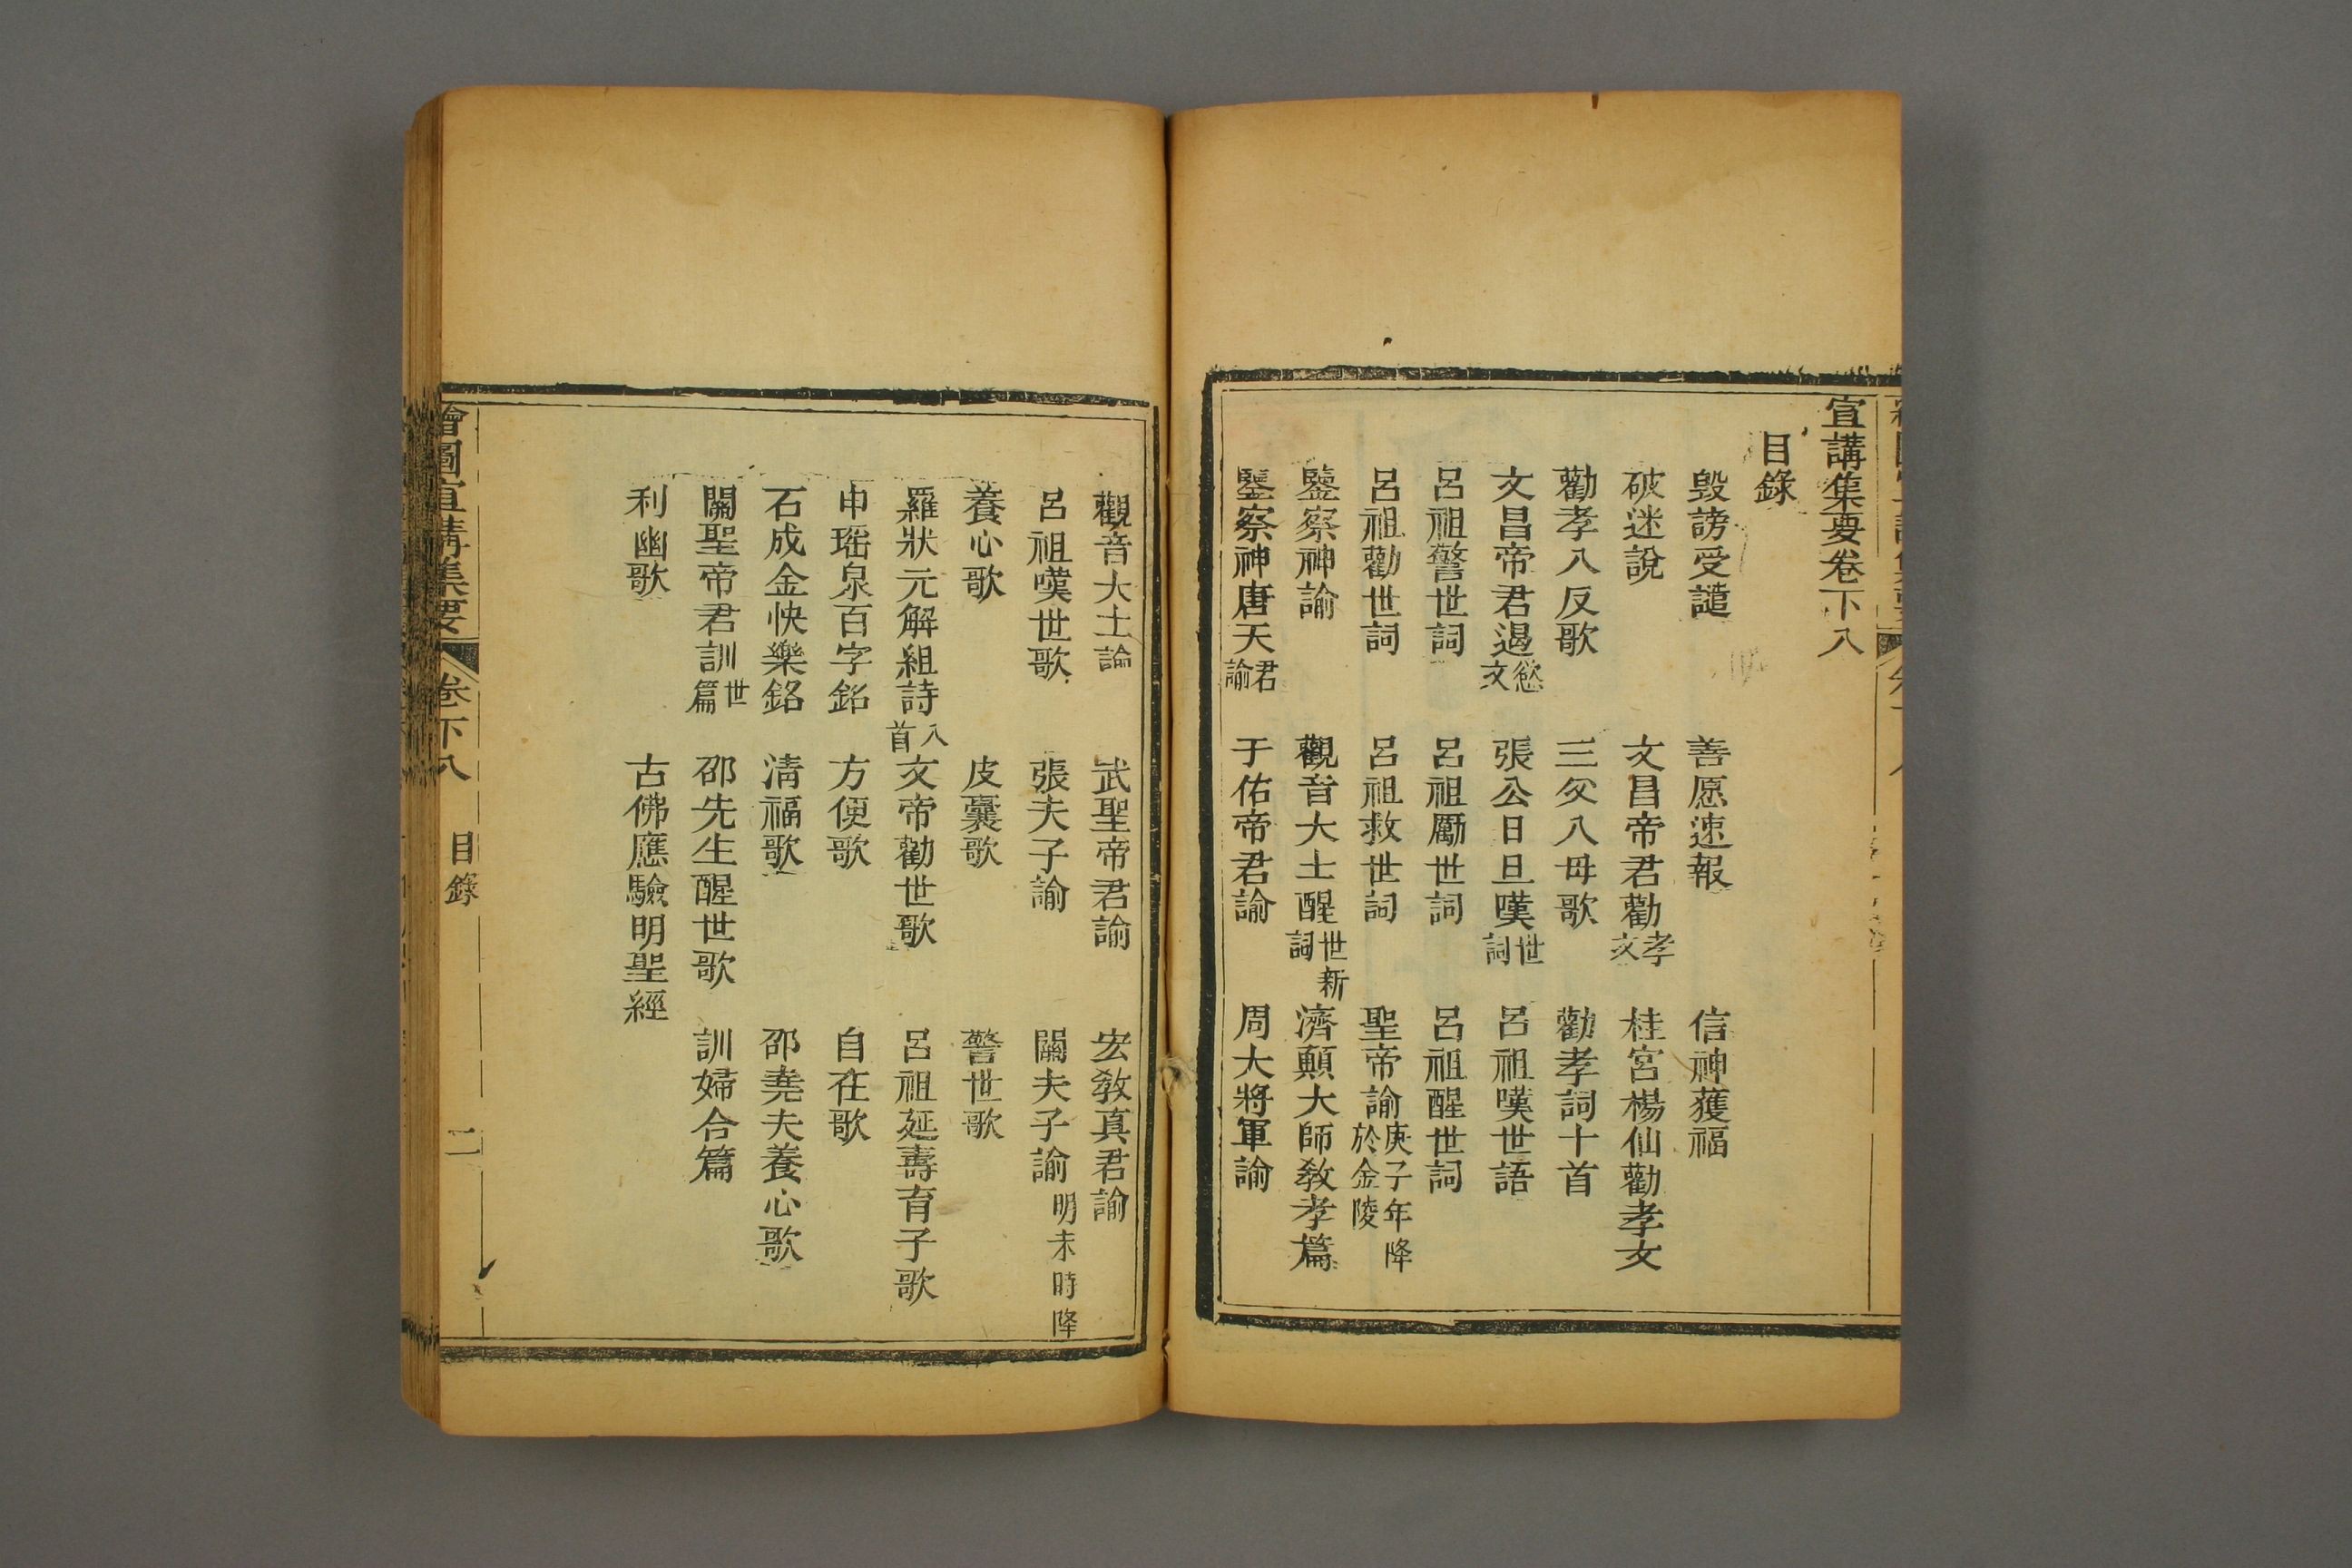 宣講集要卷下八
目錄
毀謗受譴　善愿速報　信神獲福
破迷說　文昌帝君勸孝文　桂宮楊仙勸孝文
勸孝八反歌　三父八母歌　勸孝詞十首
文昌帝君遏慾文　張公日旦嘆世詞　呂祖嘆世語
呂祖警世詞　呂祖勵世詞　呂祖醒世詞
呂祖勸世詞　呂祖救世詞　聖帝諭庚子年降於金陵
鑒察神諭　觀音大士醒世新詞　濟顛大師敎孝篇
鑒察神唐天君諭　于佑帝君諭　周大將軍諭
觀音大士諭　武聖帝君諭　宏敎真君諭
呂祖嘆世歌　張夫子諭　關夫子諭明末時降
養心歌　皮囊歌　警世歌
羅狀元解組詩八首　文帝勸世歌　呂祖延壽育子歌
申瑤泉百字銘　方便歌　自在歌
石成金快樂銘　清福歌　邵堯夫養心歌
關聖帝君訓世篇　邵先生醒世歌　訓婦合篇
利幽歌　古佛應驗明聖經
繪圖宣講集要　卷下八　目錄　二